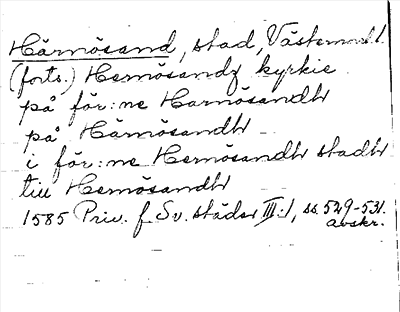 Härnösand, stad, Västernorrl.
(forts.) Hernösandz kyrkie
på för:ne Harnösandh
på Härnösandh
i för:ne Hernösandh stadh
till Hernösandh
1585 Priv. f. Sv. städer III:1, ss. 529-531.
avskr.